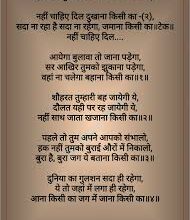 नहीं चाहिए दिल दुखाना किसी का -(२),
सदा ना रहा है सदा ना रहेगा, जमाना किसी का॥टेक॥
नहीं चाहिए दिल....
आयेगा बुलावा तो जाना पड़ेगा,
सर आखिर तुमको झुकाना पड़ेगा,
वहां ना चलेगा बहाना किसी का॥१॥
शौहरत तुम्हारी बह जायेगी ये,
दौलत यही पर रह जायेगी ये,
नहीं साथ जाता खजाना किसी का॥२॥
पहले तो तुम अपने आपको संभालो,
हक नहीं तुमको बुराई औरों में निकालो,
बुरा है, बुरा जग ये बताना किसी का॥३॥
दुनिया का गुलशन सदा ही रहेगा,
ये तो जहां में लगा ही रहेगा,
आना किसी का जग में जाना किसी का॥४॥